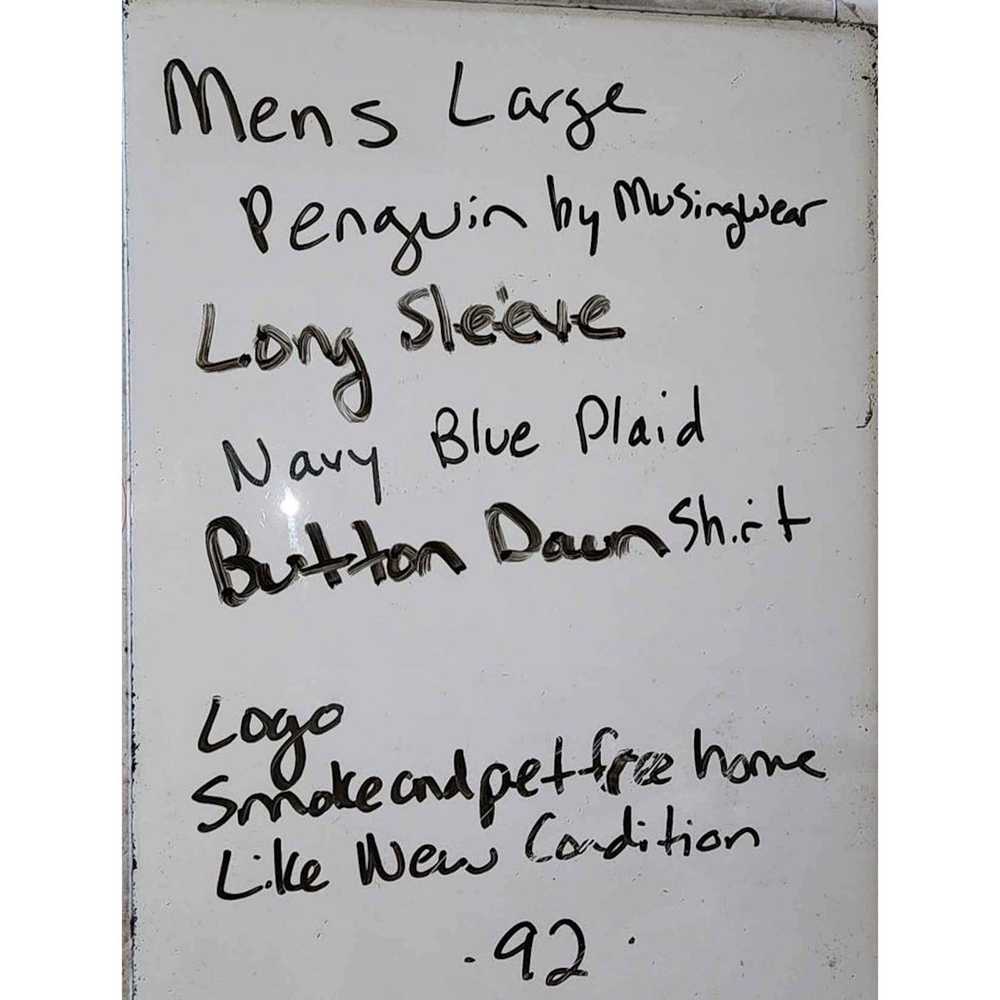 Mens Large
Penguin by Musingwear
Long Sleeve
Navy Blue Plaid
Button Down Shirt
Logo
Smoke and pet free home
Like New Condition
. 92 .